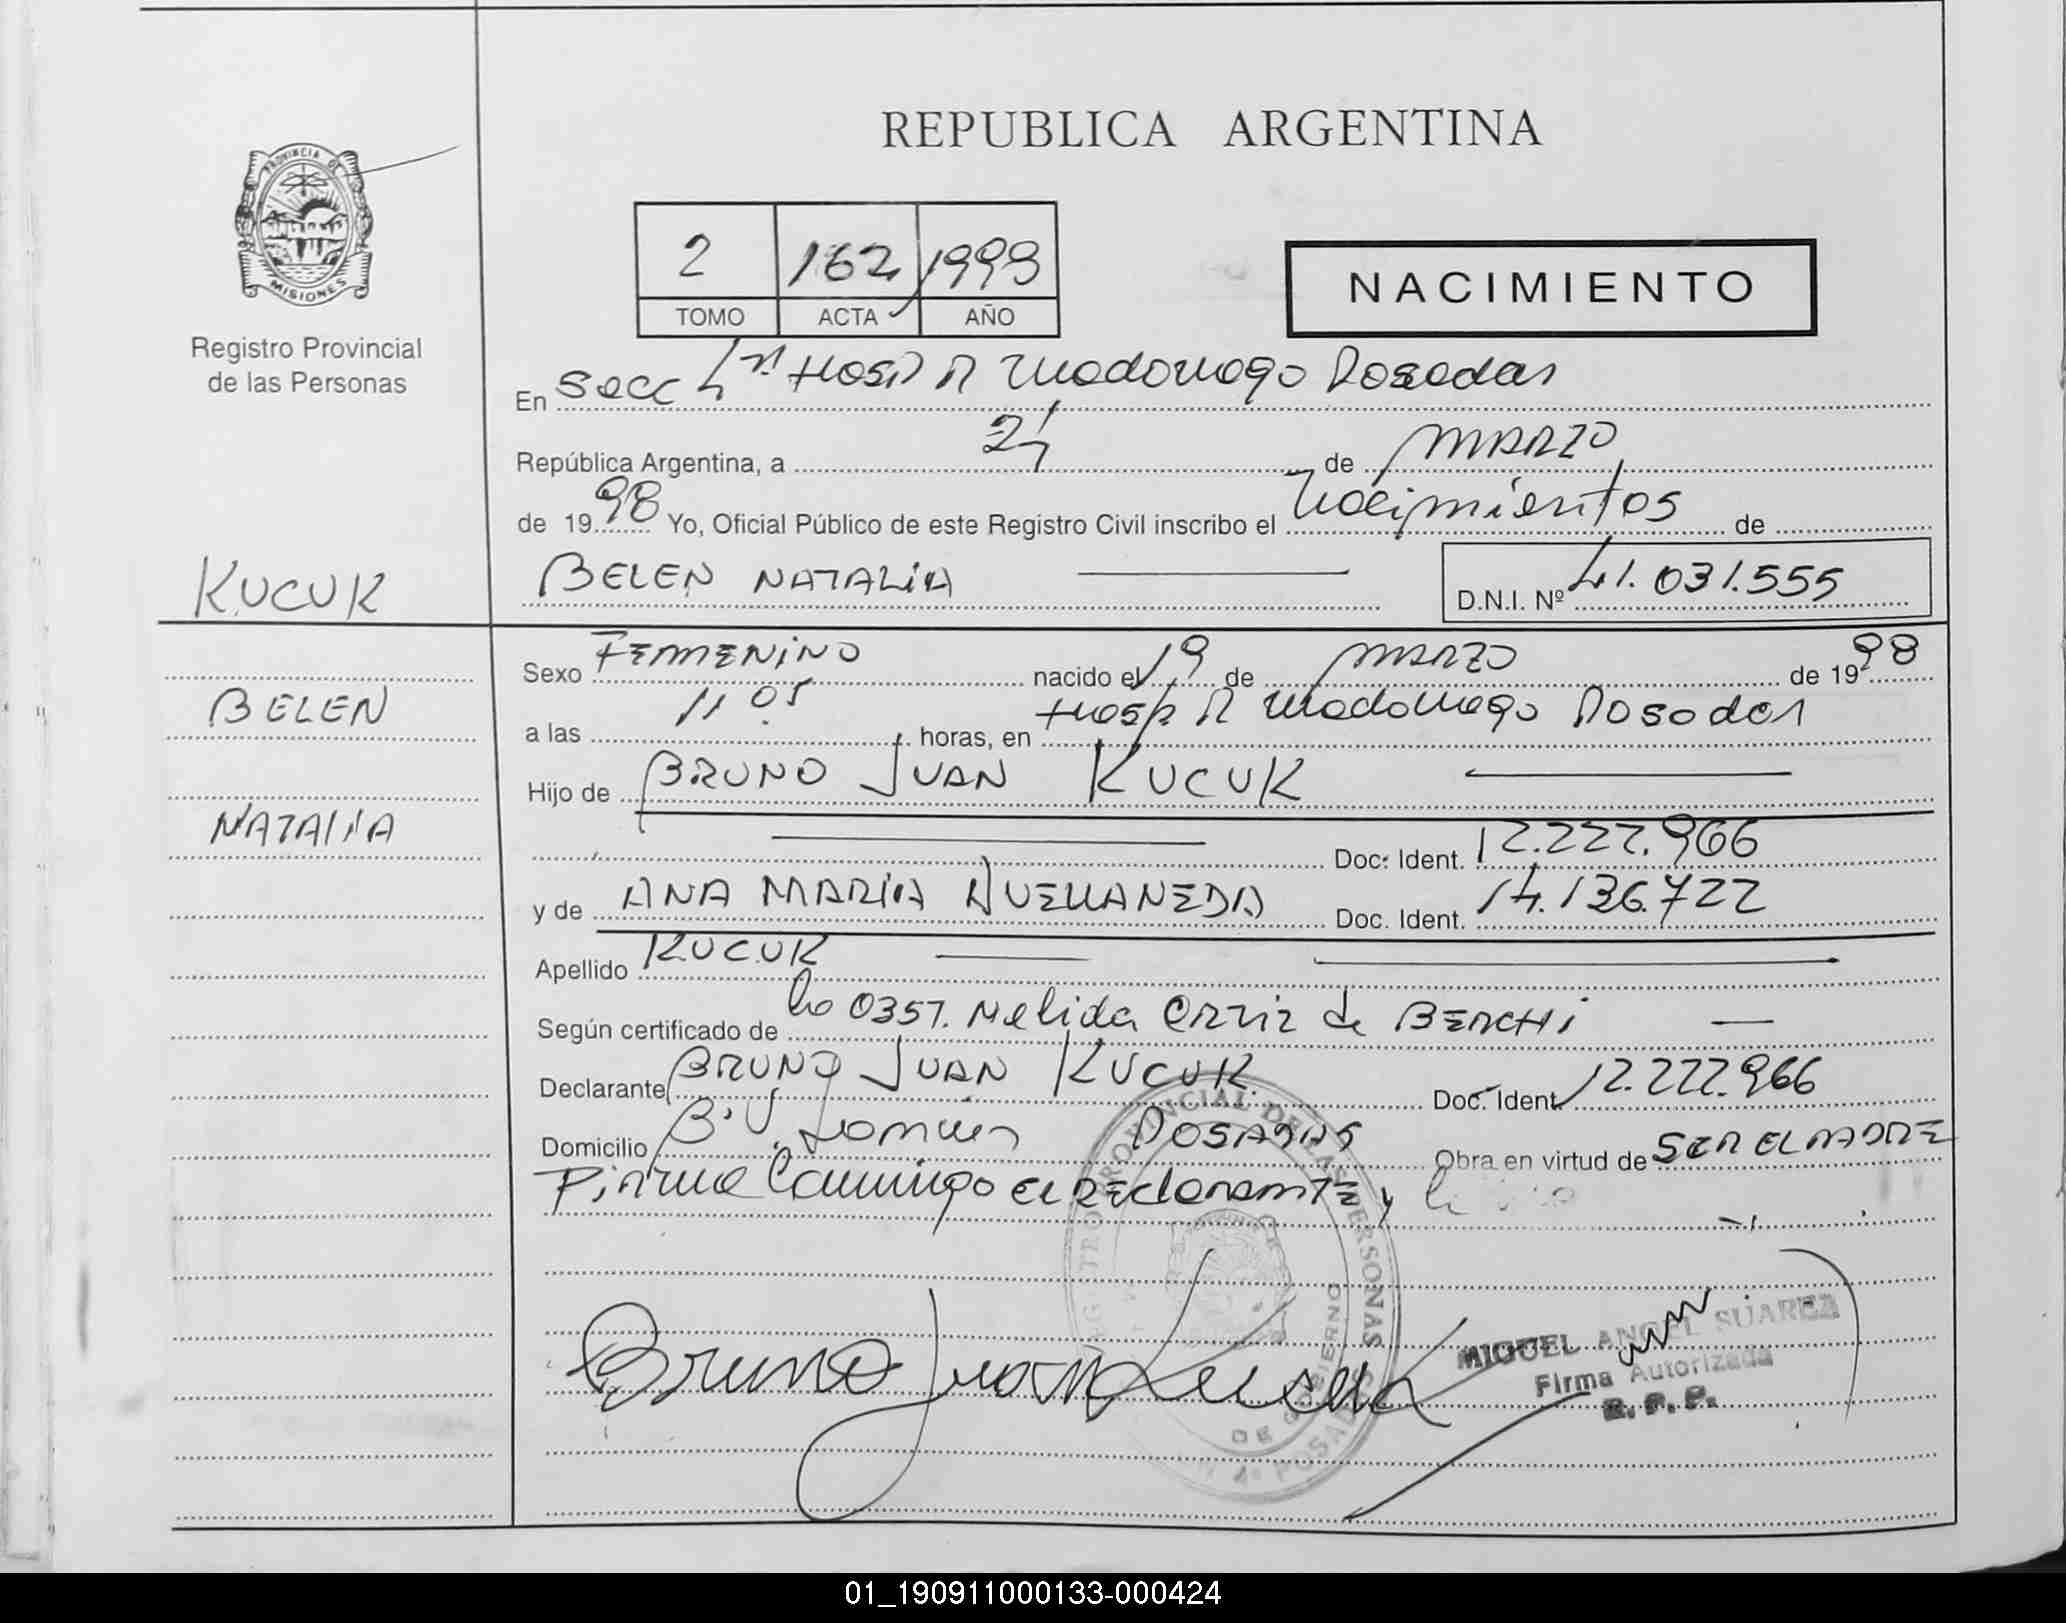 REPUBLICA ARGENTINA
PROVINCIA DE
MISIONES
Registro Provincial
de las Personas
2 162 1998
TOMO ACTA AÑO
NACIMIENTO
En Secc 4ª Hosp R Madariaga Posadas
República Argentina, a 24 de MARZO
de 19 98 Yo, Oficial Público de este Registro Civil inscribo el Nacimientos de
KUCUK
BELEN NATALIA
D.N.I. Nº 41.031.555
Sexo FEMENINO nacido el 19 de MARZO de 19 98
BELEN
a las 11 05 horas, en Hosp R Madariaga Posadas
Hijo de BRUNO JUAN KUCUK
NATALIA
Doc. Ident. 12.227.966
y de ANA MARIA AVELLANEDA Doc. Ident. 14.136.722
Apellido KUCUK
Según certificado de 0357. Nelida Ortiz de BERCHI
Declarante BRUNO JUAN KUCUK Doc. Ident. 12.227.966
Domicilio B. POSADAS Obra en virtud de SER EL PADRE
Firma Conmigo el Declarante y
REGISTRO PROVINCIAL DE LAS PERSONAS
DE GOBIERNO
POSADAS
Bruno Juan Kucuk
MIGUEL ANGEL SUAREZ
Firma Autorizada
R. P. P.
01_190911000133-000424